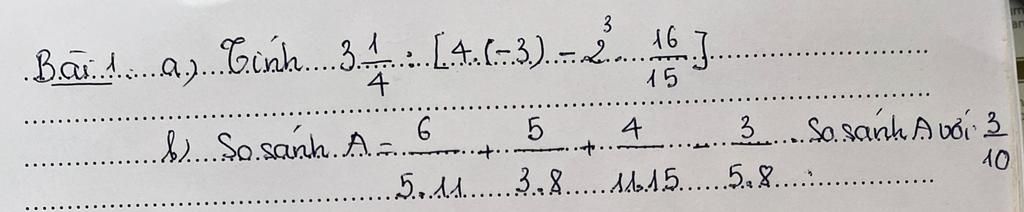 Bài 1. a) Tính 3 1/4 : [4.(-3) - 2³. 16/15]
b) So sánh A = 6/5.11 + 5/3.8 + 4/11.15 - 3/5.8. So sánh A với 3/10